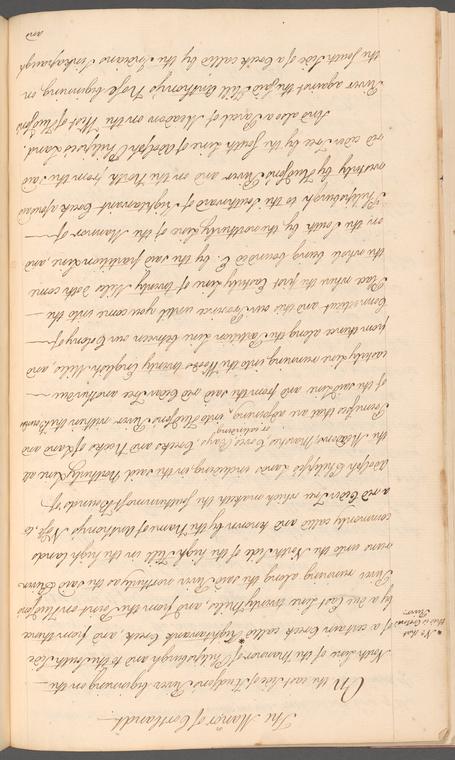 The Manor of Cortlandt.
On the east side of Hudsons River beginning on the
North line of the Mannor of Philipsburgh and to the South Side
of a certain Creek called Kightawank Creek, and from thence
by a due East Line twenty Miles, and from the Point on Hudsons
River running along the said River northerly as the said River
runs unto the North side of the high Hill in the high Lands
commonly called and known by the Name of Anthonys Nose, to
a red Cedar Tree which maketh the Southernmost Bounds of
Adolph Philips's Lands including in the said Northerly Line all
the Meadows, Marshes, Coves, Bays, Creeks and Necks of Land and
or
Premises that are adjoining, or extending into Hudsons River within the bounds
of the said Line and from the said red Cedar Tree another due
easterly Line running into the Woods twenty English Miles, and
from thence along the Partition Line between our Colony of
Connecticut and this our Province until you come into the
Place where the first Easterly Line of twenty Miles doth come
the whole being bounded E. by the said partition Line, and
on the South by the northerly Line of the Mannor of
Philipsburgh to the Southward of Kightawank Creek aforesaid
westerly by Hudsons River and on the North from the said
red cedar Tree by the South Line of Adolph Philips's Land.
And also a Parcel of Meadow on the West of Hudsons
River against the said Hill Anthonys Nose beginning on
the South Side of a Creek called by the Indians
and
* No that
this is Croton
River.